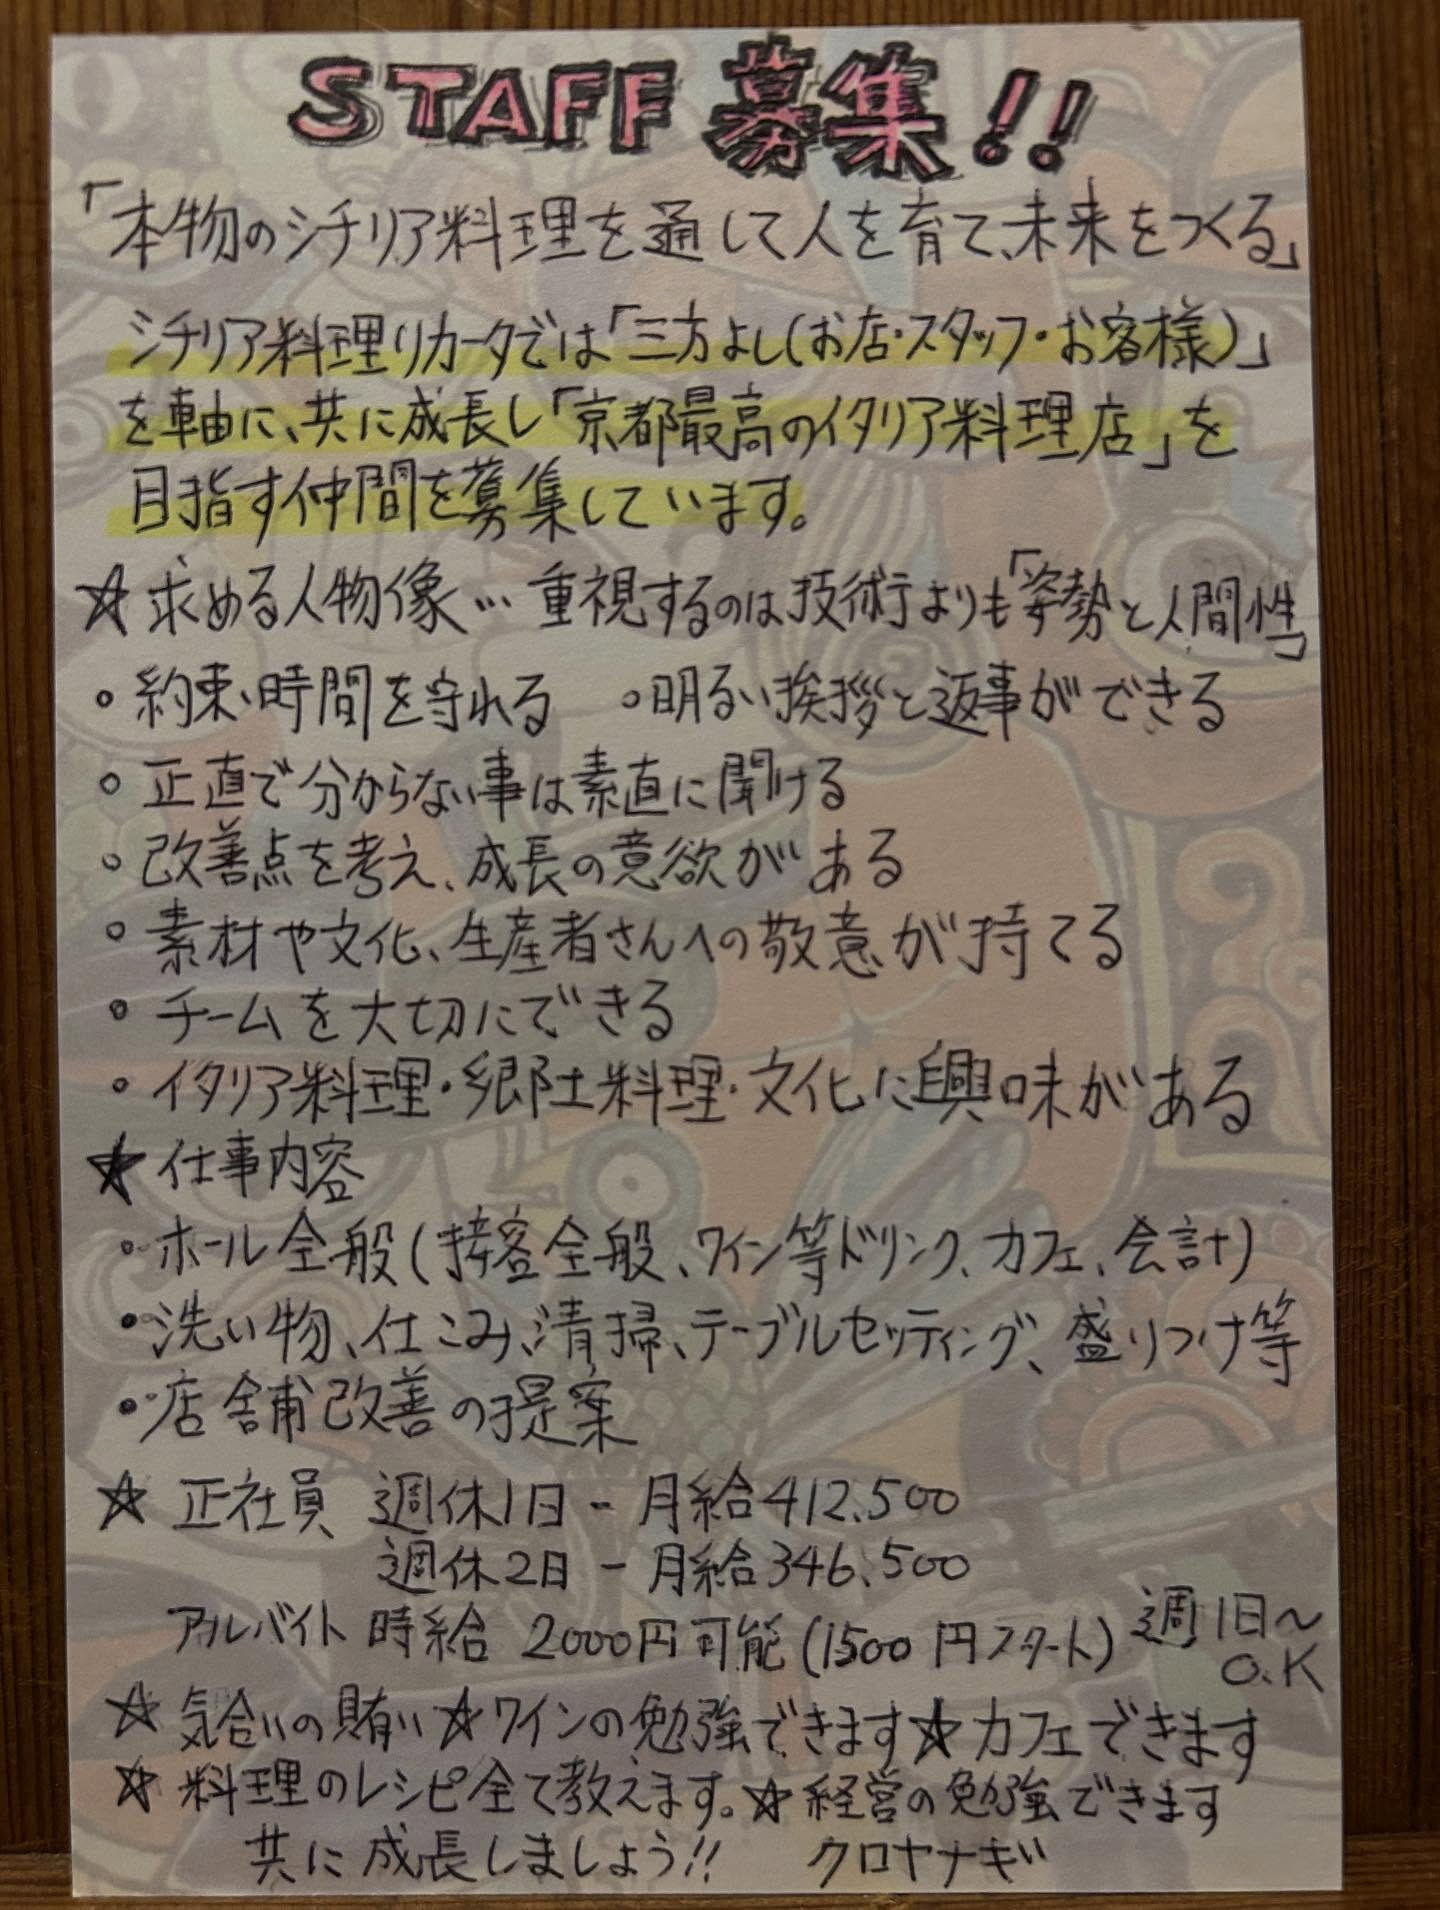 STAFF 募集!!
「本物のシチリア料理を通して人を育て、未来をつくる」
シチリア料理リカータでは「三方よし(お店・スタッフ・お客様)」
を軸に、共に成長し「京都最高のイタリア料理店」を
目指す仲間を募集しています。
☆ 求める人物像…重視するのは技術よりも「姿勢と人間性」
・約束・時間を守れる ・明るい挨拶と返事ができる
・正直で分からない事は素直に聞ける
・改善点を考え、成長の意欲がある
・素材や文化、生産者さんへの敬意が持てる
・チームを大切にできる
・イタリア料理・郷土料理・文化に興味がある
☆ 仕事内容
・ホール全般(接客全般、ワイン等ドリンク、カフェ、会計)
・洗い物、仕こみ、清掃、テーブルセッティング、盛りつけ等
・店舗改善の提案
☆ 正社員 週休1日 - 月給412,500
週休2日 - 月給346,500
アルバイト 時給 2000円可能(1500円スタート) 週1日〜O.K
☆ 気合いの賄い ☆ワインの勉強できます ☆カフェできます
☆ 料理のレシピ全て教えます。☆ 経営の勉強できます
共に成長しましょう!! クロヤナギ